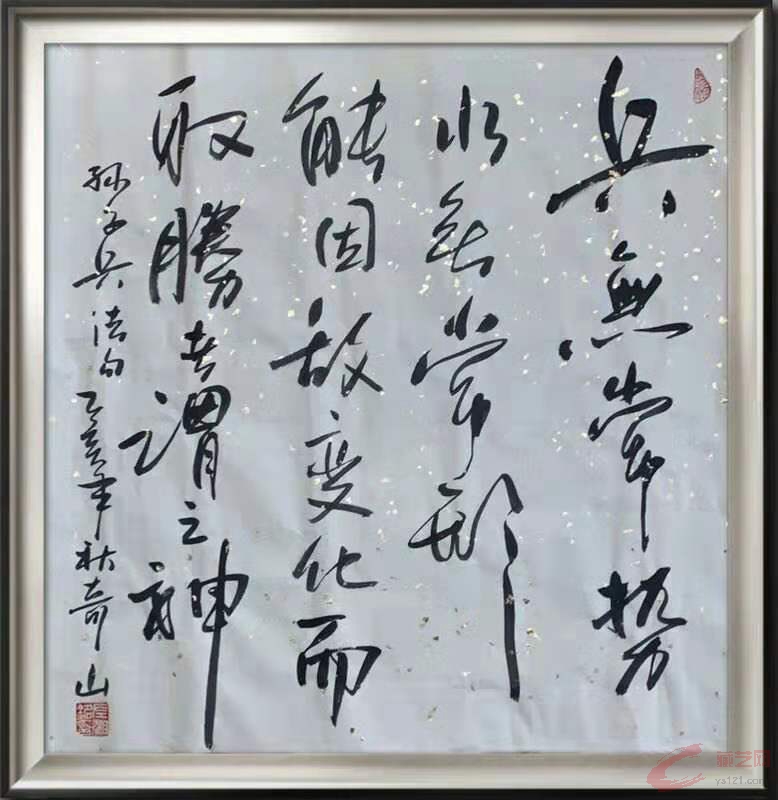 兵無常势
水無常形
能因敌变化而
取勝者谓之神
孙子兵法句 乙亥年秋奇山
新艺网
ys121.com